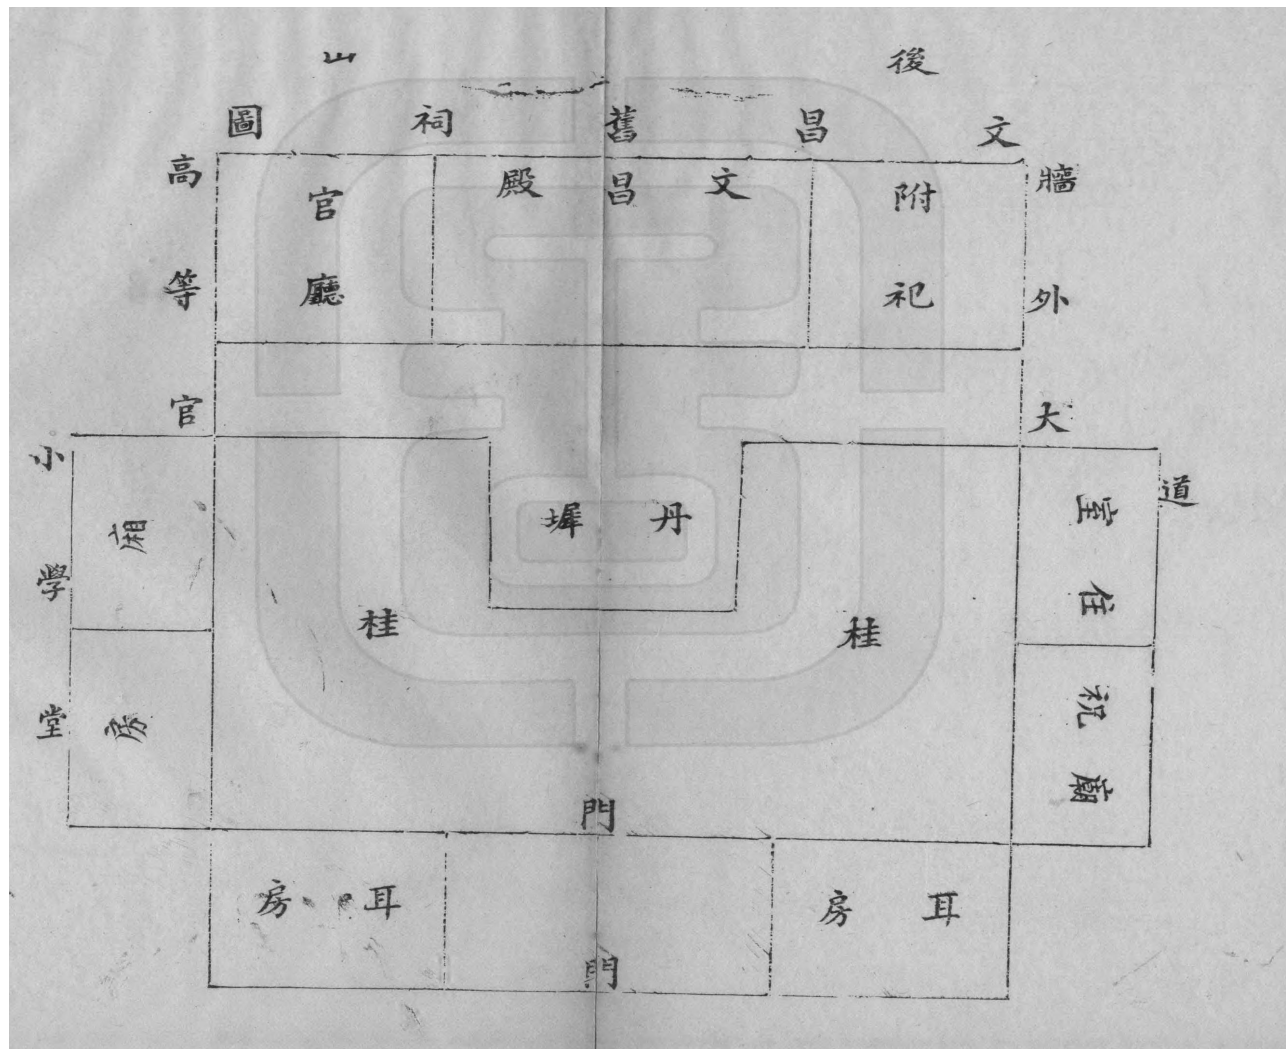 後山
文昌舊祠圖
牆外大道
附祀
文昌殿
官廳
高等官小學堂
丹墀
桂
桂
住室
廟祝
廂房
門
耳房
耳房
門